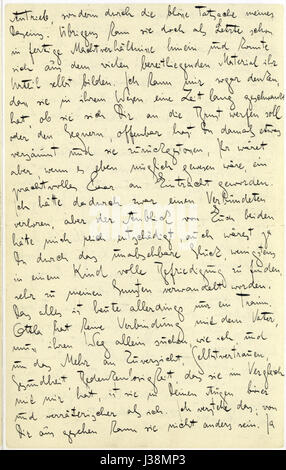 Antrieb, sondern durch die bloße Tatsache meines
Daseins. Übrigens kam sie doch als Letzte schon
in fertige Machtverhältnisse hinein und konnte
sich aus dem vielen bereitliegenden Material ihr
Urteil selbst bilden. Ich kann mir sogar denken
daß sie in ihrem Wesen eine Zeit lang geschwankt
hat ob sie sich Dir an die Brust werfen soll
oder den Gegnern, offenbar hast Du damals etwas
versäumt und sie zurückgestoßen, Ihr wäret
aber, wenn es eben möglich gewesen wäre, ein
prachtvolles Paar an Eintracht geworden.
Ich hätte dadurch zwar einen Verbündeten
verloren, aber der Anblick von Euch beiden
hätte mich reich entschädigt, auch wärest ja
Du durch das unabsehbare Glück, wenigstens
in einem Kind volle Befriedigung zu finden,
sehr zu meinen Gunsten verwandelt worden.
Das alles ist heute allerdings nur ein Traum.
Ottla hat keine Verbindung mit dem Vater,
muß ihren Weg allein suchen, wie ich, und
um das Mehr an Zuversicht, Selbstvertrauen,
Gesundheit, Bedenkenlosigkeit das sie im Vergleich
mit mir hat, ist sie in Deinen Augen böser
und verräterischer als ich. Ich verstehe das; von
Dir aus gesehen kann sie nicht anders sein. Ja
alamy
J38MP3